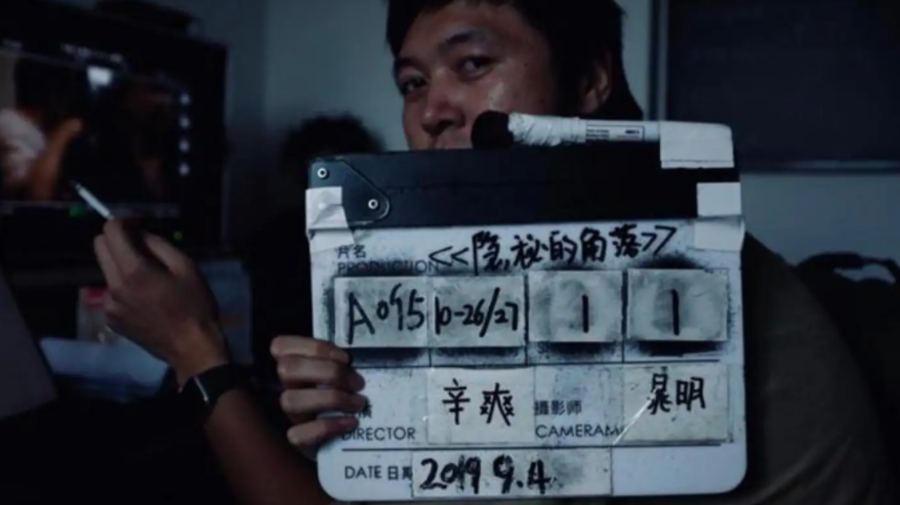 片名
PRODUCTION <<隐秘的角落>>
A095 10-26/27 1 1
辛爽 攝影师 晁明
DIRECTOR CAMERAM
DATE 日期 2019 9.4